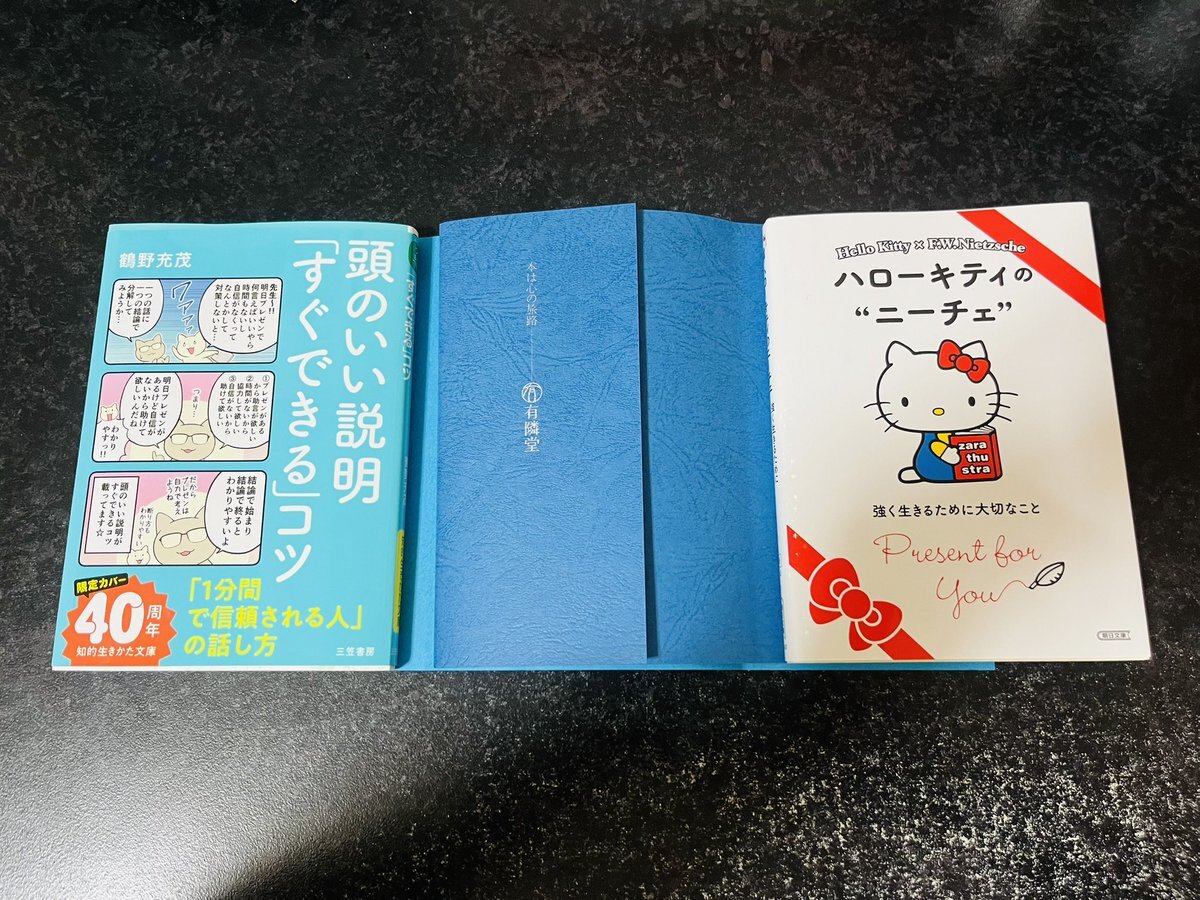 鶴野充茂
頭のいい説明
「すぐできる」コツ
先生〜!!
明日プレゼンで
何言えばいいやら
時間もないし
自信がなくって
なんとかして
対策しないと…
ワァァァ
一つの話に
一つの結論で
分解して
みようか…
①プレゼンがある
から助言が欲しい
②時間がないから
協力して欲しい
③自信がないから
助けて欲しい
つまり…
明日プレゼンが
あるけど自信が
ないから助けて
欲しいんだね
わかり
やすっ!!
結論で始まり
結論で終ると
わかりやすいよ
だから
プレゼンは
自力で考え
ようね
断り方も
わかりやすい
頭のいい説明が
すぐできるコツ
載ってます☆
限定カバー
40周年
知的生きかた文庫
「1分間
で信頼される人」
の話し方
三笠書房
本は心の旅路
有隣堂
Hello Kitty × F.W.Nietzsche
ハローキティの
“ニーチェ”
zara
thu
stra
強く生きるために大切なこと
Present for
You
朝日文庫